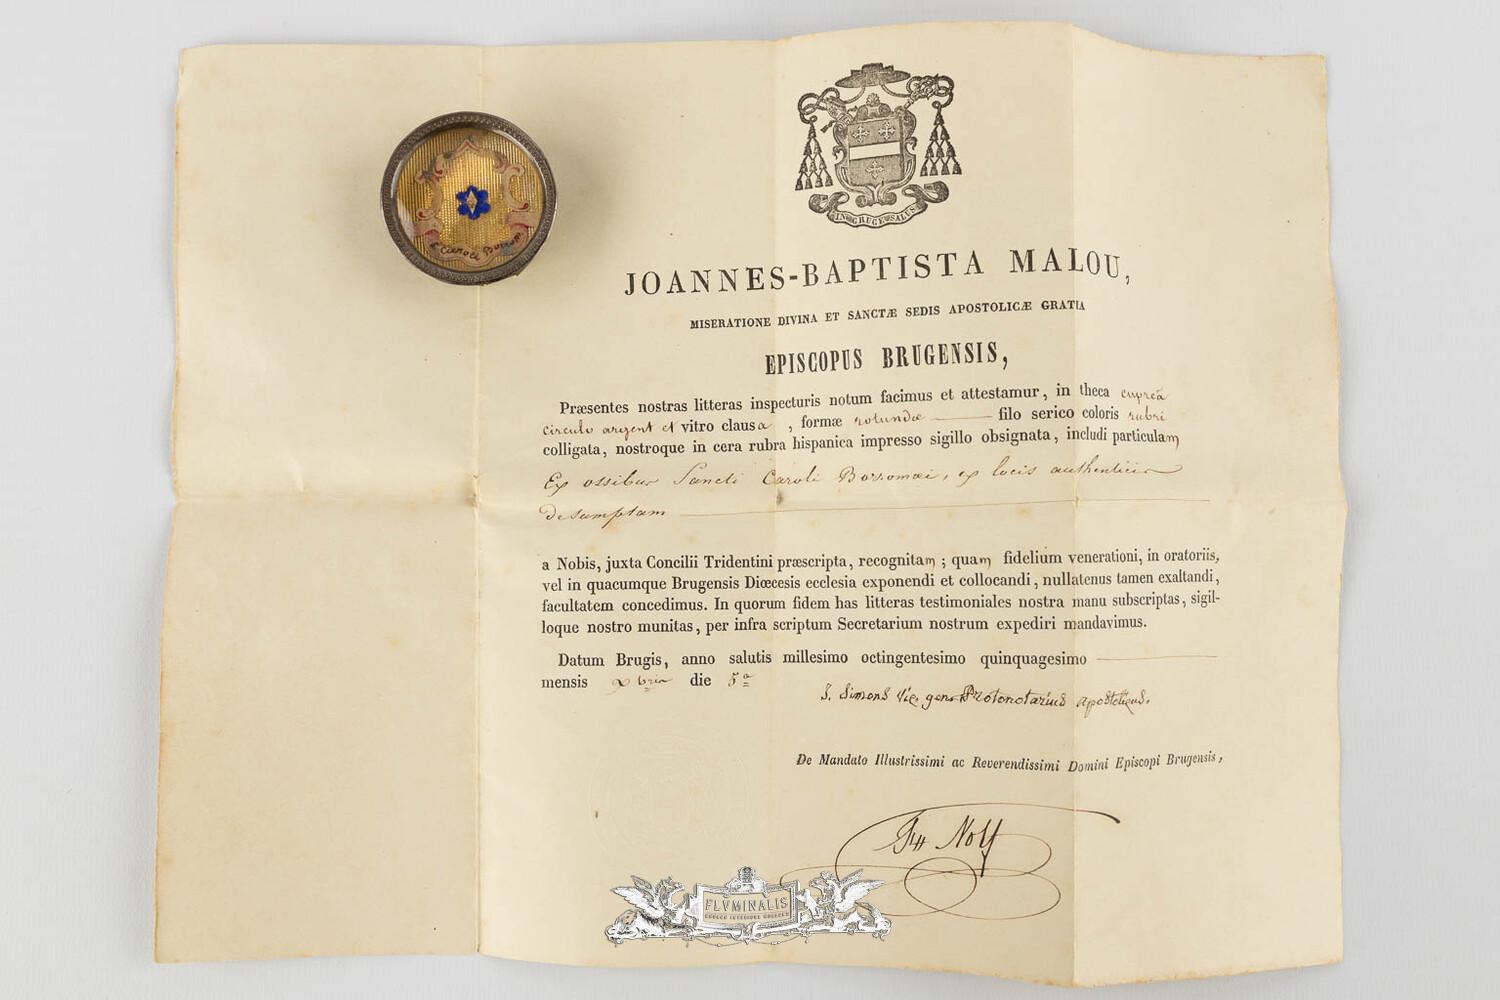 S. Caroli Borrom
IN CRUCE SALUS
JOANNES-BAPTISTA MALOU,
MISERATIONE DIVINA ET SANCTÆ SEDIS APOSTOLICÆ GRATIA
EPISCOPUS BRUGENSIS,
Præsentes nostras litteras inspecturis notum facimus et attestamur, in theca cupreâ
circulo argent et vitro clausa, formæ rotundæ filo serico coloris rubri
colligata, nostroque in cera rubra hispanica impresso sigillo obsignata, includi particulam
Ex ossibus Sancti Caroli Borromæi, ex locis authenticis
desumptam
a Nobis, juxta Concilii Tridentini præscripta, recognitam ; quam fidelium venerationi, in oratoriis,
vel in quacumque Brugensis Diœcesis ecclesia exponendi et collocandi, nullatenus tamen exaltandi,
facultatem concedimus. In quorum fidem has litteras testimoniales nostra manu subscriptas, sigil-
loque nostro munitas, per infra scriptum Secretarium nostrum expediri mandavimus.
Datum Brugis, anno salutis millesimo octingentesimo quinquagesimo
mensis Xbris die 5ª
J. Simons Vic. gen. Protonotarius apostolicus.
De Mandato Illustrissimi ac Reverendissimi Domini Episcopi Brugensis,
Nolf
FLVMINALIS